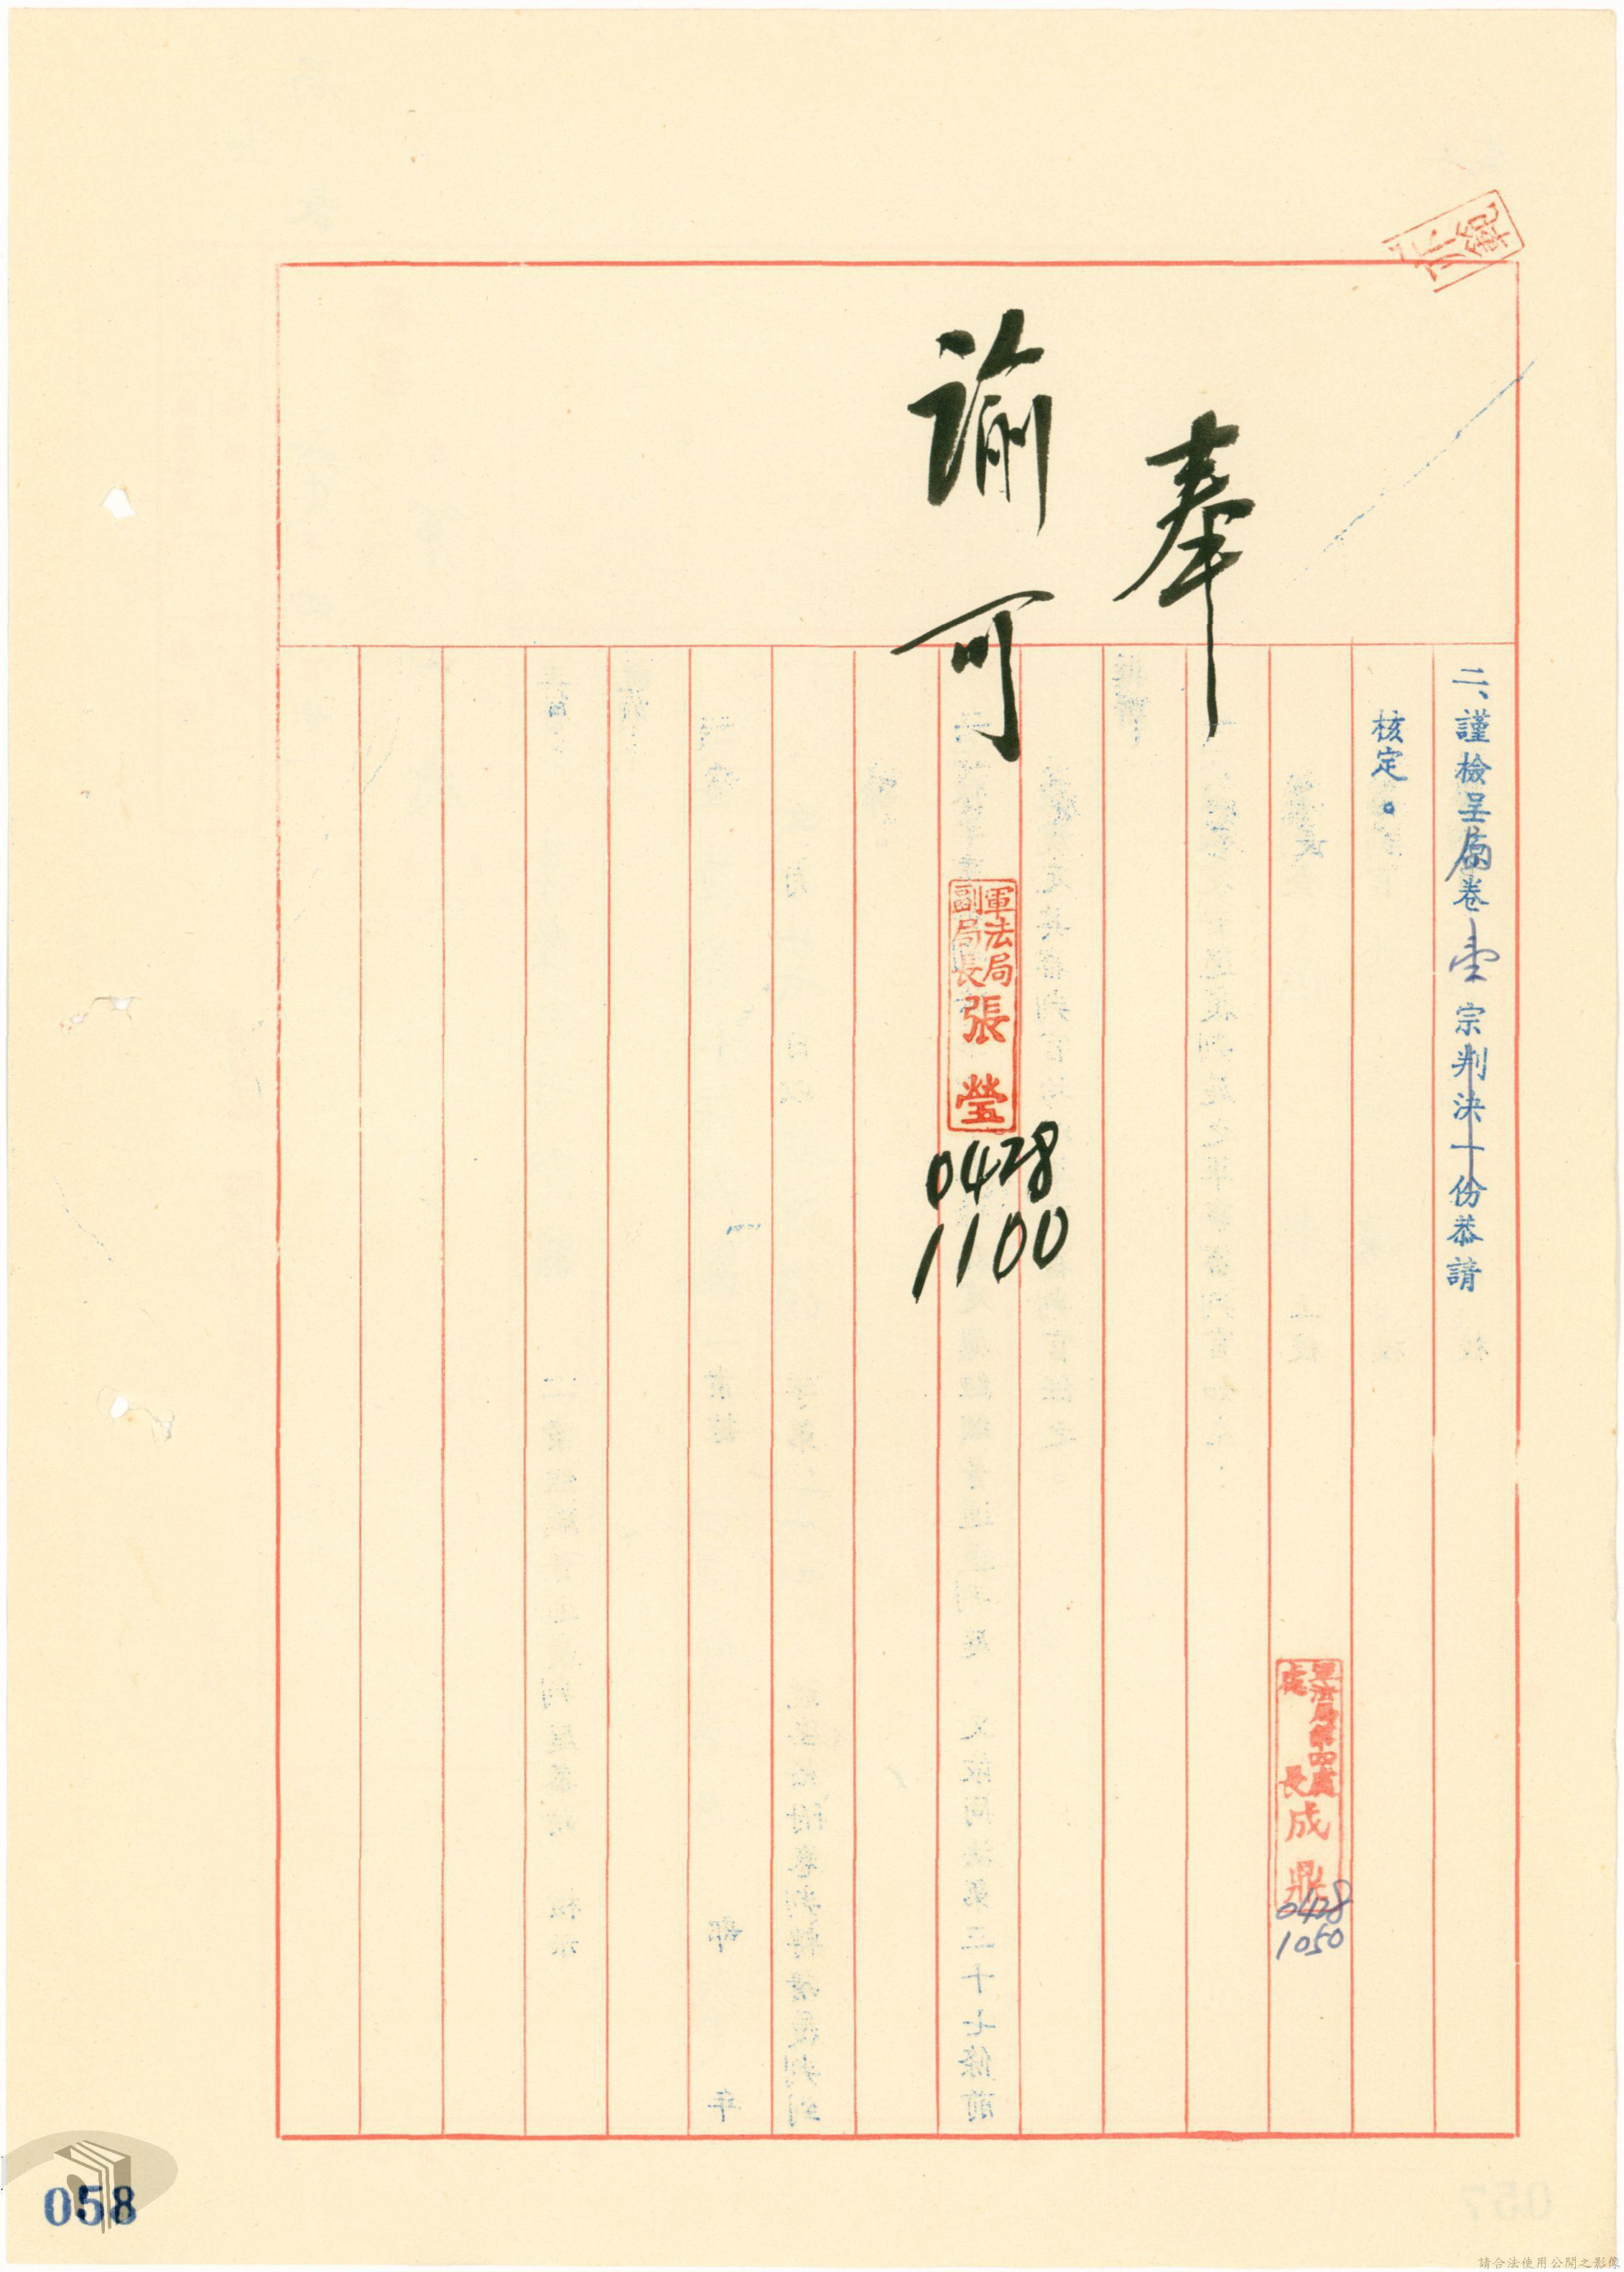 二、謹檢呈原卷壹宗判決十份恭請
核定。
軍法局第四處
處長成鼎
0428
1050
奉
諭
可
軍法局
副局長
張瑩
0428
1100
058
請合法使用公開之影像